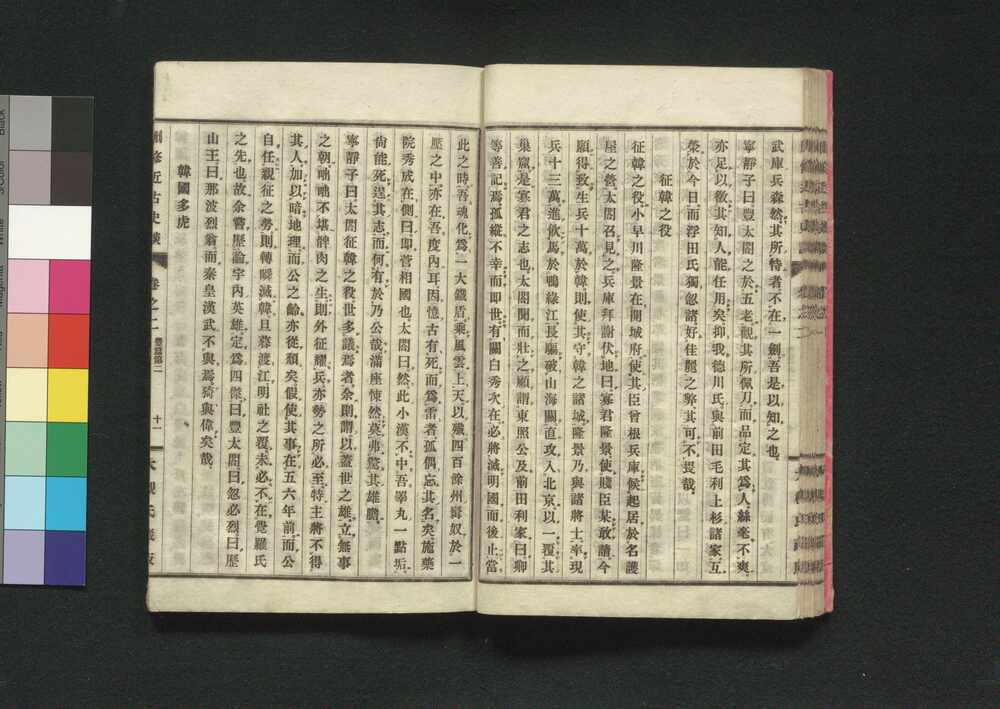 武庫兵森然其所恃者不在一劍吾是以知之也
寧靜子曰豐太閤之於五老觀其所佩刀而品定其爲人絲毫不爽
亦足以徵其知人能任用矣抑我德川氏與前田毛利上杉諸家互
榮於今日而浮田氏獨忽諸好佳麗之弊其可不畏哉
征韓之役
征韓之役小早川隆景在開城府使其臣曾根兵庫候起居於名護
屋之營太閤召見之兵庫拜謝伏地曰寡君隆景使賤臣某敢請今
願得致生兵十萬於韓則使其守韓之諸城隆景乃與諸將士率現
兵十三萬進飮馬於鴨綠江長驅破山海關直攻入北京以一覆其
巢窟是寡君之志也太閤聞而壯之顧謂東照公及前田利家曰卿
等善記焉孤縱不幸而即世有關白秀次在必將滅明國而後止當
此之時吾魂化爲一大鐵盾乘風雲上天以殲四百餘州髯奴於一
壓之中亦在吾度內耳因憶古有死而爲雷者孤偶忘其名矣施藥
院秀成在側曰即菅相國也太閤曰然此小漢不中吾睾丸一點垢
尙能死逞其志而何有於乃公哉滿座悚然莫弗驚其雄膽
寧靜子曰太閤征韓之役世多議焉者余則謂以蓋世之雄立無事
之朝咄咄不堪髀肉之生則外征耀兵亦勢之所必至特主將不得
其人加以暗地理而公之齡亦從頹矣假使其事在五六年前而公
自任親征之勞則轉瞬滅韓旦暮渡江明社之覆未必不在覺羅氏
之先也故余嘗歷論宇內英雄定爲四傑曰豐太閤曰忽必烈曰歷
山王曰那波烈翁而秦皇漢武不與焉猗與偉矣哉
韓國多虎
刪修近古史談 卷之二 豐篇第二 十一 大觀氏藏版